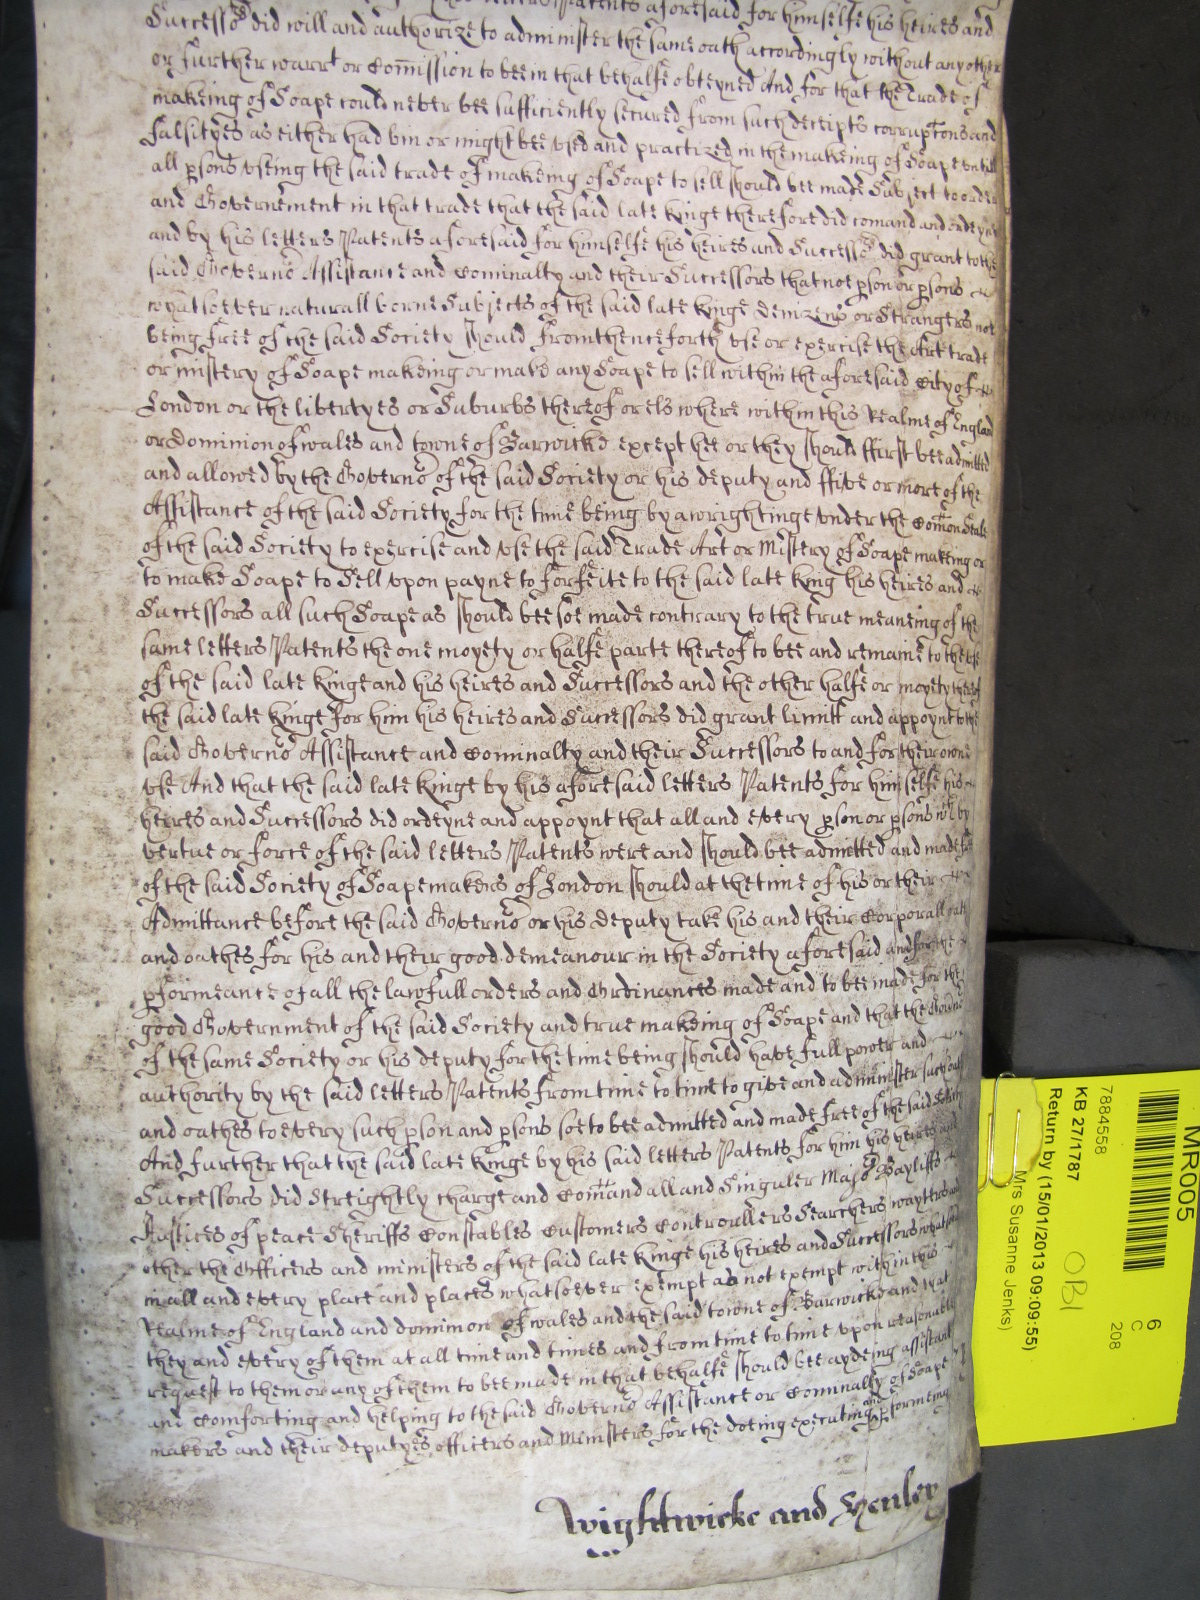 Letters Patents aforesaid for himselfe his heires and
Successors did will and authorize to administer the same oath accordingly without any other
or further warrt or Comission to bee in that behalfe obteyned And for that the Trade of
makeing of Soape could never bee sufficiently secured from such deceipts corruptons and
falsityes as either had bin or might bee used and practized in the makeing of Soape untill
all psons useing the said trade of makeing of Soape to sell should bee made Subject to order
and Governement in that trade that the said late kinge therefore did comand and ordeyne
and by his letters Patents aforesaid for himselfe his heires and Successors did grant to the
said Governor Assistance and Cominalty and their Successors that noe pson or psons
whatsoever naturall borne Subjects of the said late kinge denizens or Strangers not
being free of the said Society should from thence forth use or exercise the Art trade
or mistery of Soape makeing or make any Soape to sell within the aforesaid City of
London or the libertyes or Suburbs thereof or els where within this Realme of England
or dominion of wales and towne of Barwicke except hee or they should ffirst bee admitted
and allowed by the Governor of the said Society or his deputy and ffive or more of the
Assistance of the said Society for the time being by a wrightinge under the Comon Seale
of the said Society to exercise and use the said Trade Art or Mistery of Soape makeing or
to make Soape to Sell upon payne to forfeite to the said late king his heires and
Successors all such Soape as should bee soe made contrary to the true meaneing of the
same letters Patents the one moyety or halfe parte thereof to bee and remaine to the use
of the said late kinge and his heires and Successors and the other halfe or moyety thereof
the said late kinge for him his heires and Successors did grant limitt and appoynt to the
said Governor Assistance and Cominalty and their Successors to and for their owne
use And that the said late kinge by his aforesaid letters Patents for himselfe his
heires and Successors did ordeyne and appoynt that all and every pson or psons wch by
vertue or force of the said letters Patents were and should bee admitted and made free
of the said Society of Soapemakers of London should at the time of his or their
Admittance before the said Governor or his deputy take his and their Corporall oath
and oathes for his and their good demeanour in the Society aforesaid and for the
pformeance of all the lawfull orders and Ordinances made and to bee made for the
good Government of the said Society and true makeing of Soape and that the Governor
of the same Society or his deputy for the time being should have full power and
authority by the said letters Patents from time to time to give and administer such oath
and oathes to every such pson and psons soe to bee admitted and made free of the said Society
And further that the said late kinge by his said letters Patents for him his heires and
Successors did streightly charge and Comand all and Singuler Majors Bayliffs
Justices of peace Sheriffs Constables Customers Controwlers Searchers wayters and
other the Officers and ministers of the said late kinge his heires and Successors whatsoever
in all and every place and places whatsoever exempt as not exempt within this
Realme of England and dominion of wales and the said towne of Barwicke and that
they and every of them at all time and times and from time to time upon reasonable
request to them or any of them to bee made in that behalfe should bee aydeing assistant
and Comforting and helping to the said Governor Assistance or Cominalty of Soape
makers and their deputyes officers and Ministers for the doeing executing and pformeing
Wightwicke and Henley
MR005
6
C
208
7884558
KB 27/1787
OBI
Return by (15/01/2013 09:09:55)
Mrs Susanne Jenks)